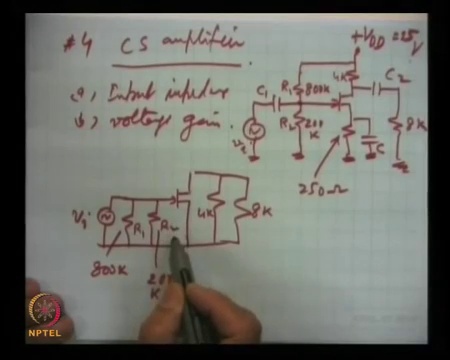 #4 CS amplifier
a, Input impedance
b, voltage gain.
+VDD = 25V
4K
C2
R1 800K
C1
R2 200K
8K
Vi
C
250Ω
Vi
R1
R2
4K
8K
800K
20
K
NPTEL